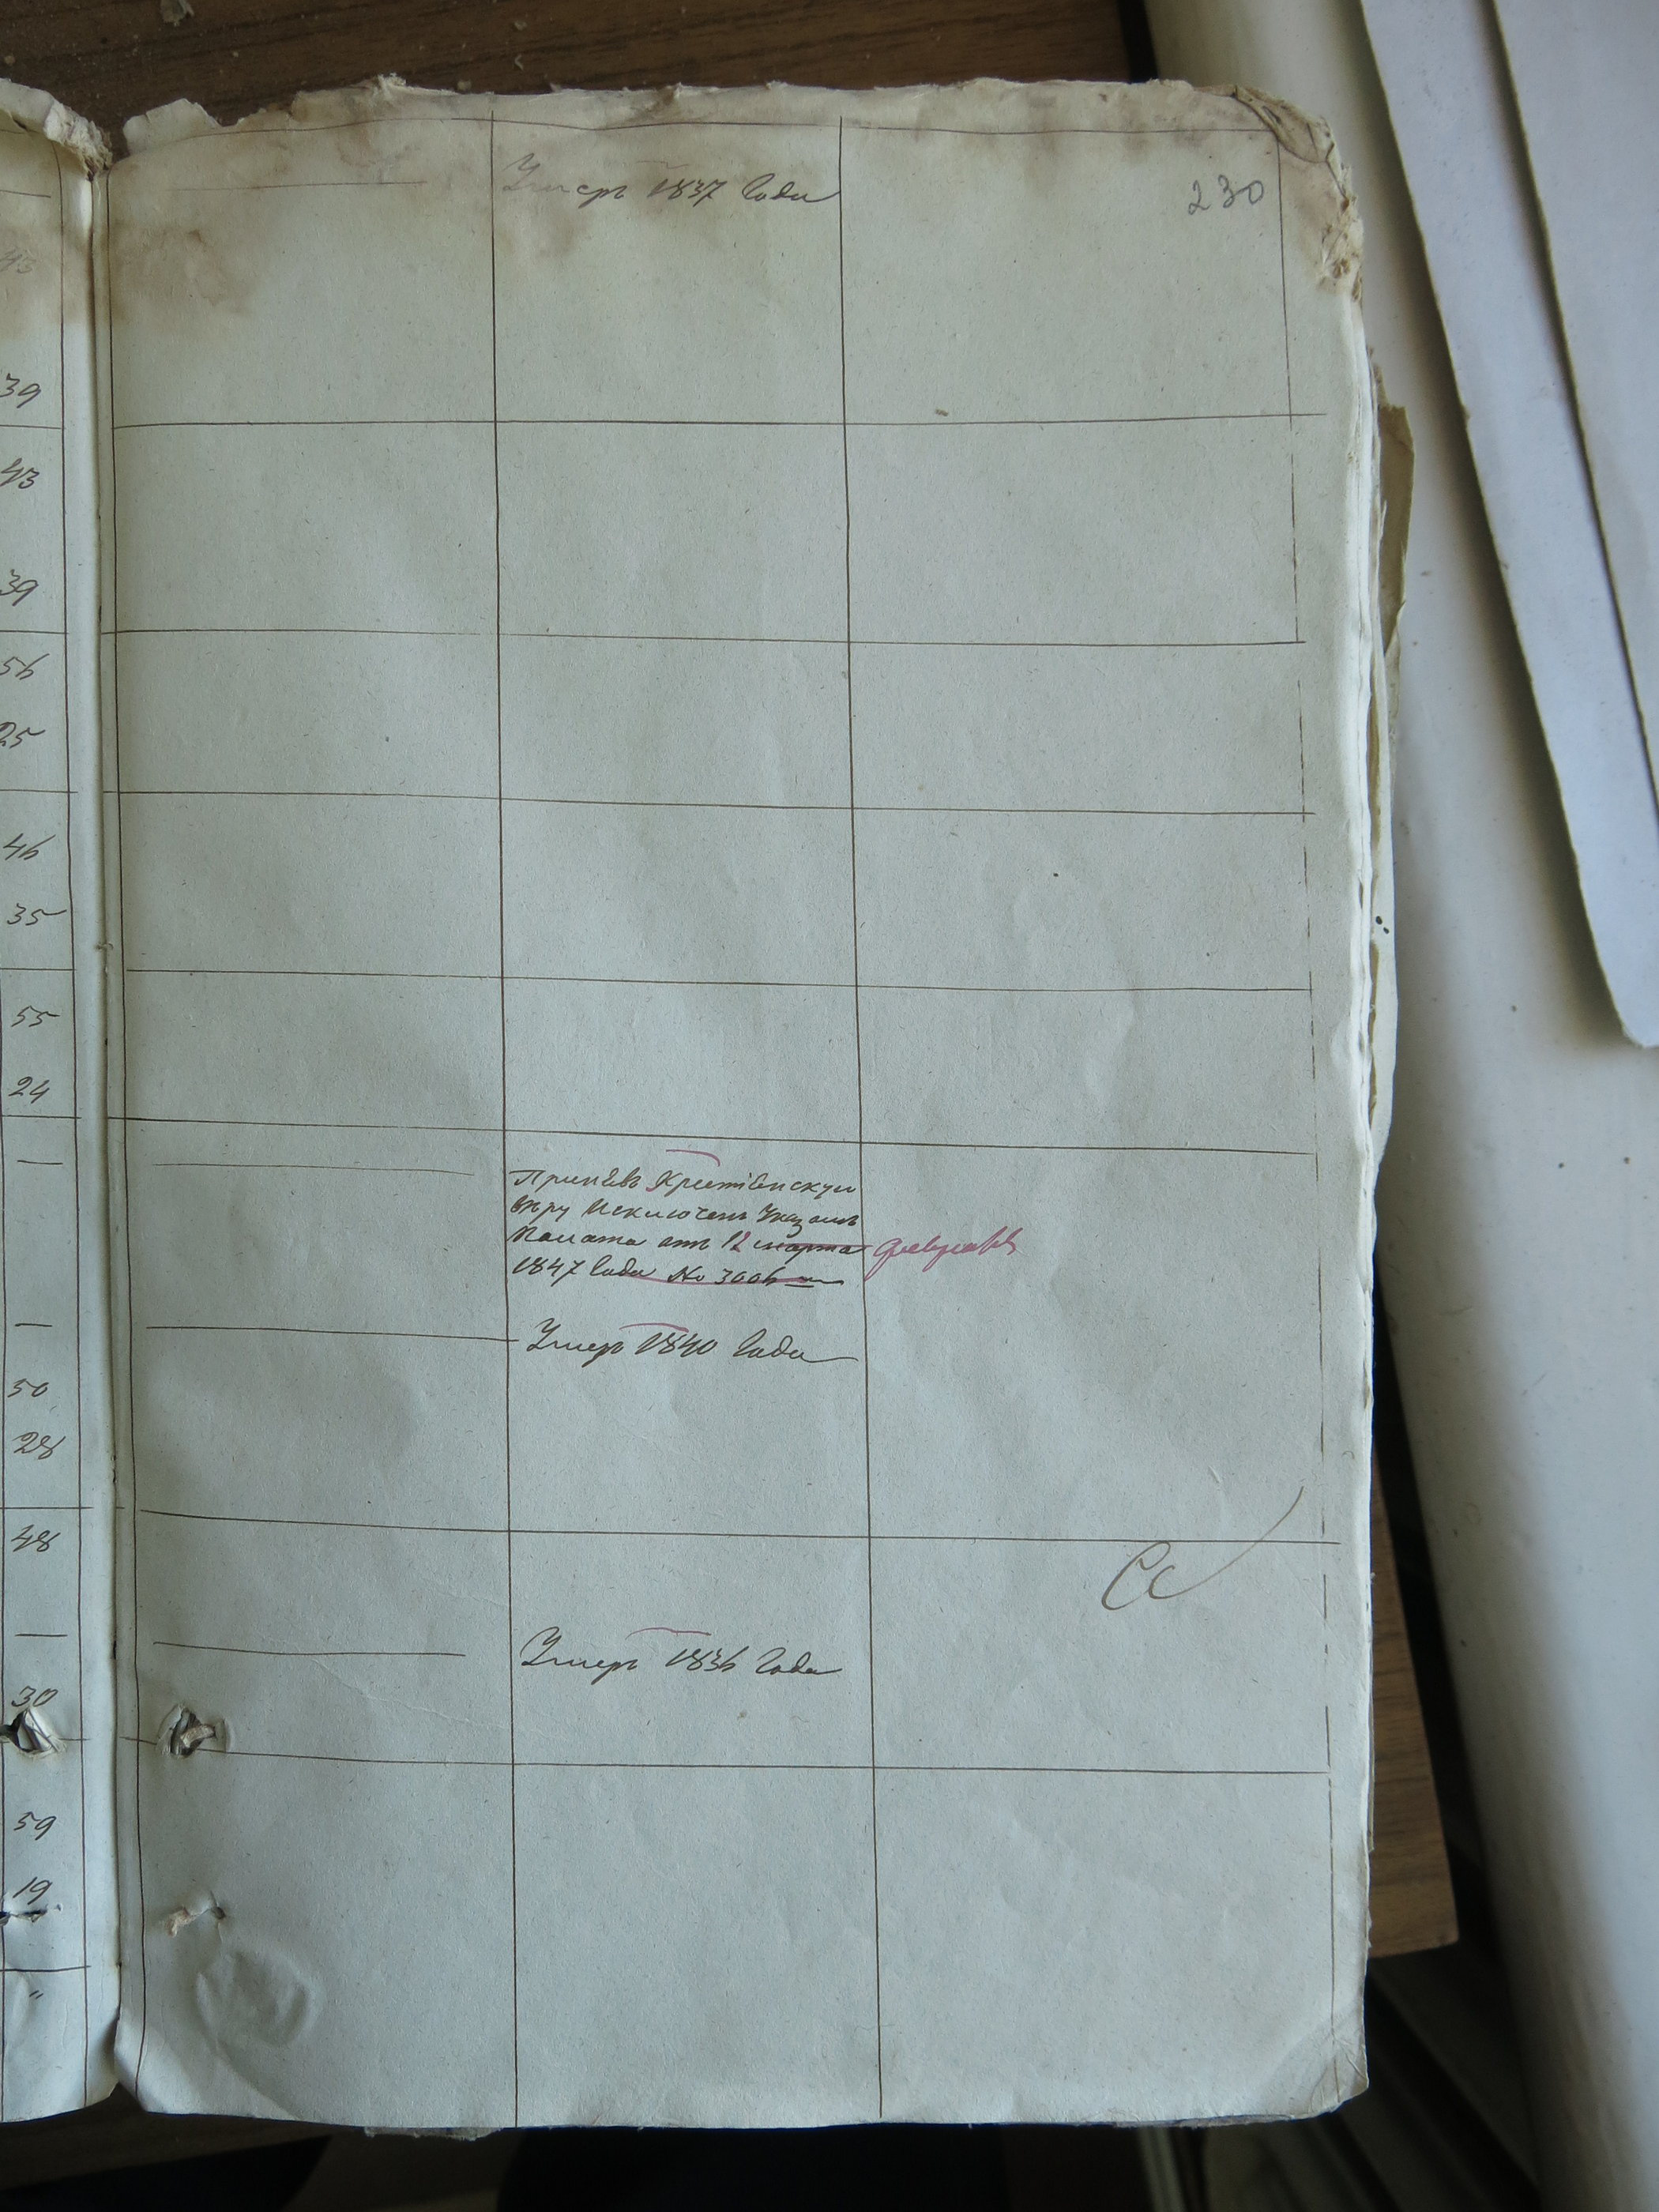 Умеръ 1837 Года
230
43
39
43
39
56
25
46
35
55
24
—
Принявъ Христіенскую
вѣру Исключенъ Указомъ
Палаты отъ 12 марта февраля
1847 Года No 3006
—
Умеръ 1840 Года
50
28
48
—
Умеръ 1836 Года
30
59
19
"